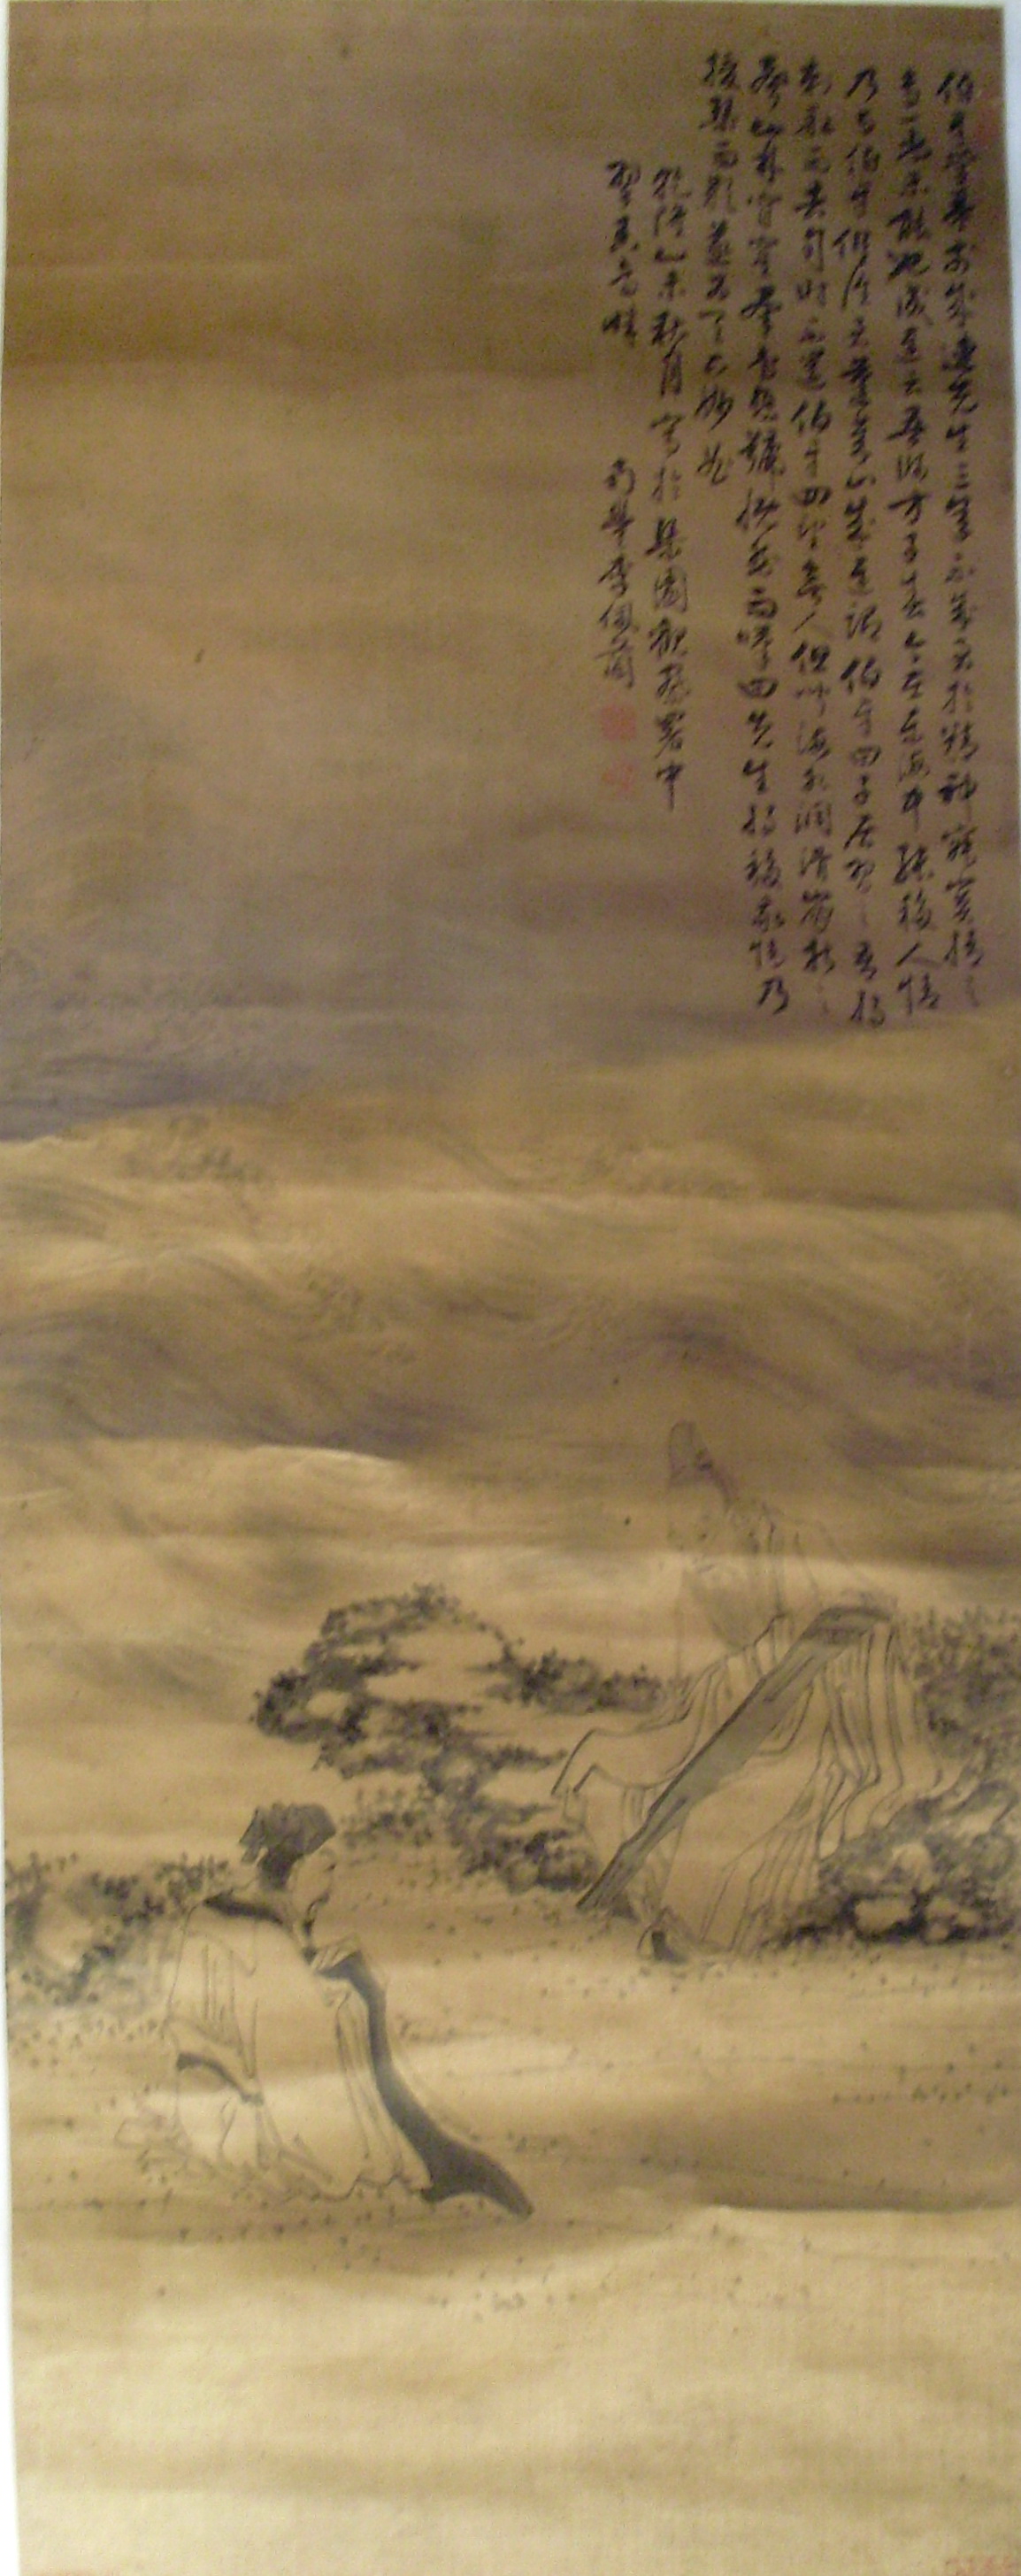 伯牙學琴於成連先生三年不成至於精神寂寞情之
專一尚未能也成連云吾師方子春今在東海中能移人情
乃與伯牙俱往至蓬萊山成連謂伯牙曰子居習之吾將
刺船而去旬時不返伯牙四望無人但聞海水洞滑崩折之
聲山林窅冥群鳥悲號愴然而嘆曰先生將移我情乃
援琴而歌天下妙
乾隆乙未秋月寫於梁園觀察署中
李佩蘭